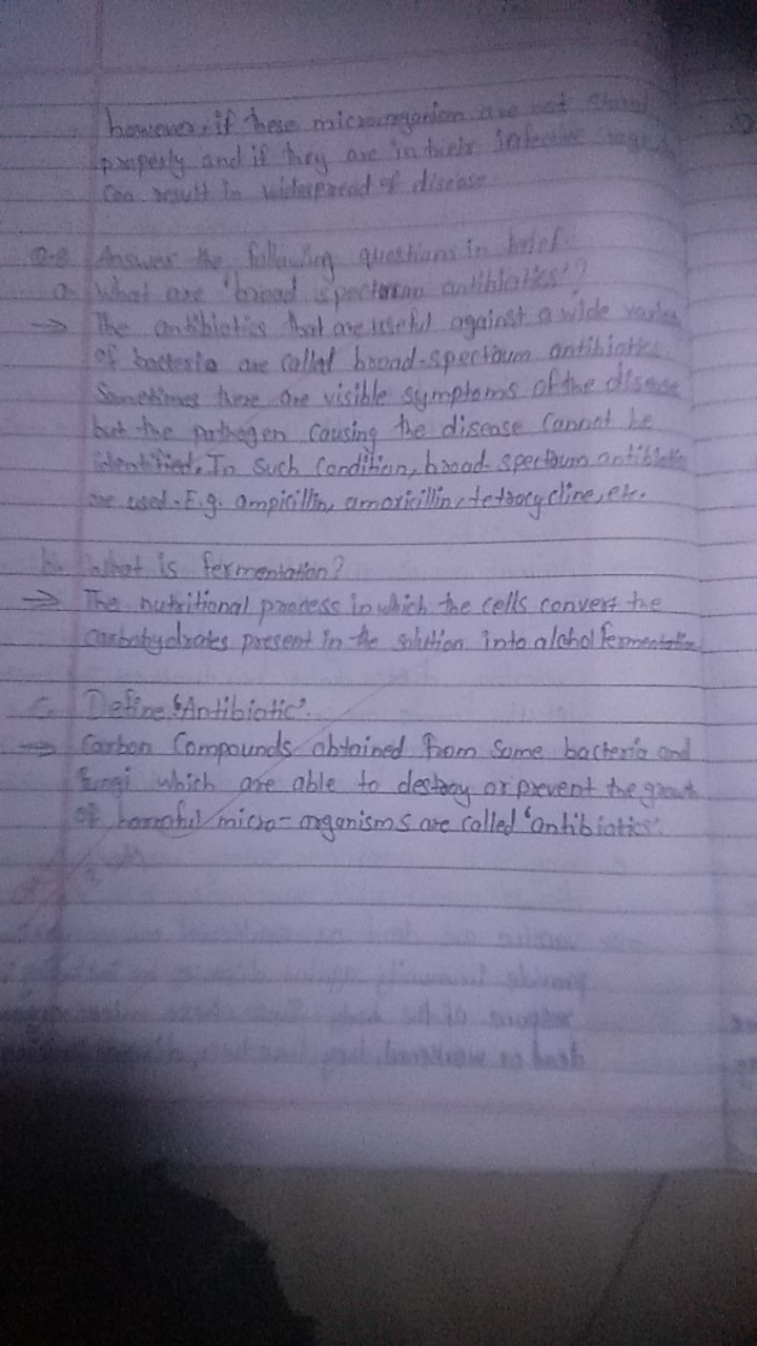 however, if these microorganism are not stored
properly and if they are in their infective stage,
can result in widespread of disease
Q-8 Answer the following questions in brief.
a. What are 'broad spectrum antibiotics'?
→ The antibiotics that are useful against a wide
of bacteria are called broad-spectrum antibiotics.
Sometimes there are visible symptoms of the disease
but the pathogen causing the disease cannot be
identified. In such condition, broad-spectrum antibiotic
are used. E.g. ampicillin, amoxicillin, tetracycline, etc.
b. What is fermentation?
→ The nutritional process in which the cells convert the
carbohydrates present in the solution into alchol fermentation
c. Define 'Antibiotic'.
→ Carbon Compounds obtained from some bacteria and
fungi which are able to destroy or prevent the growt
of harmful micro-organisms are called 'antibiotics'.